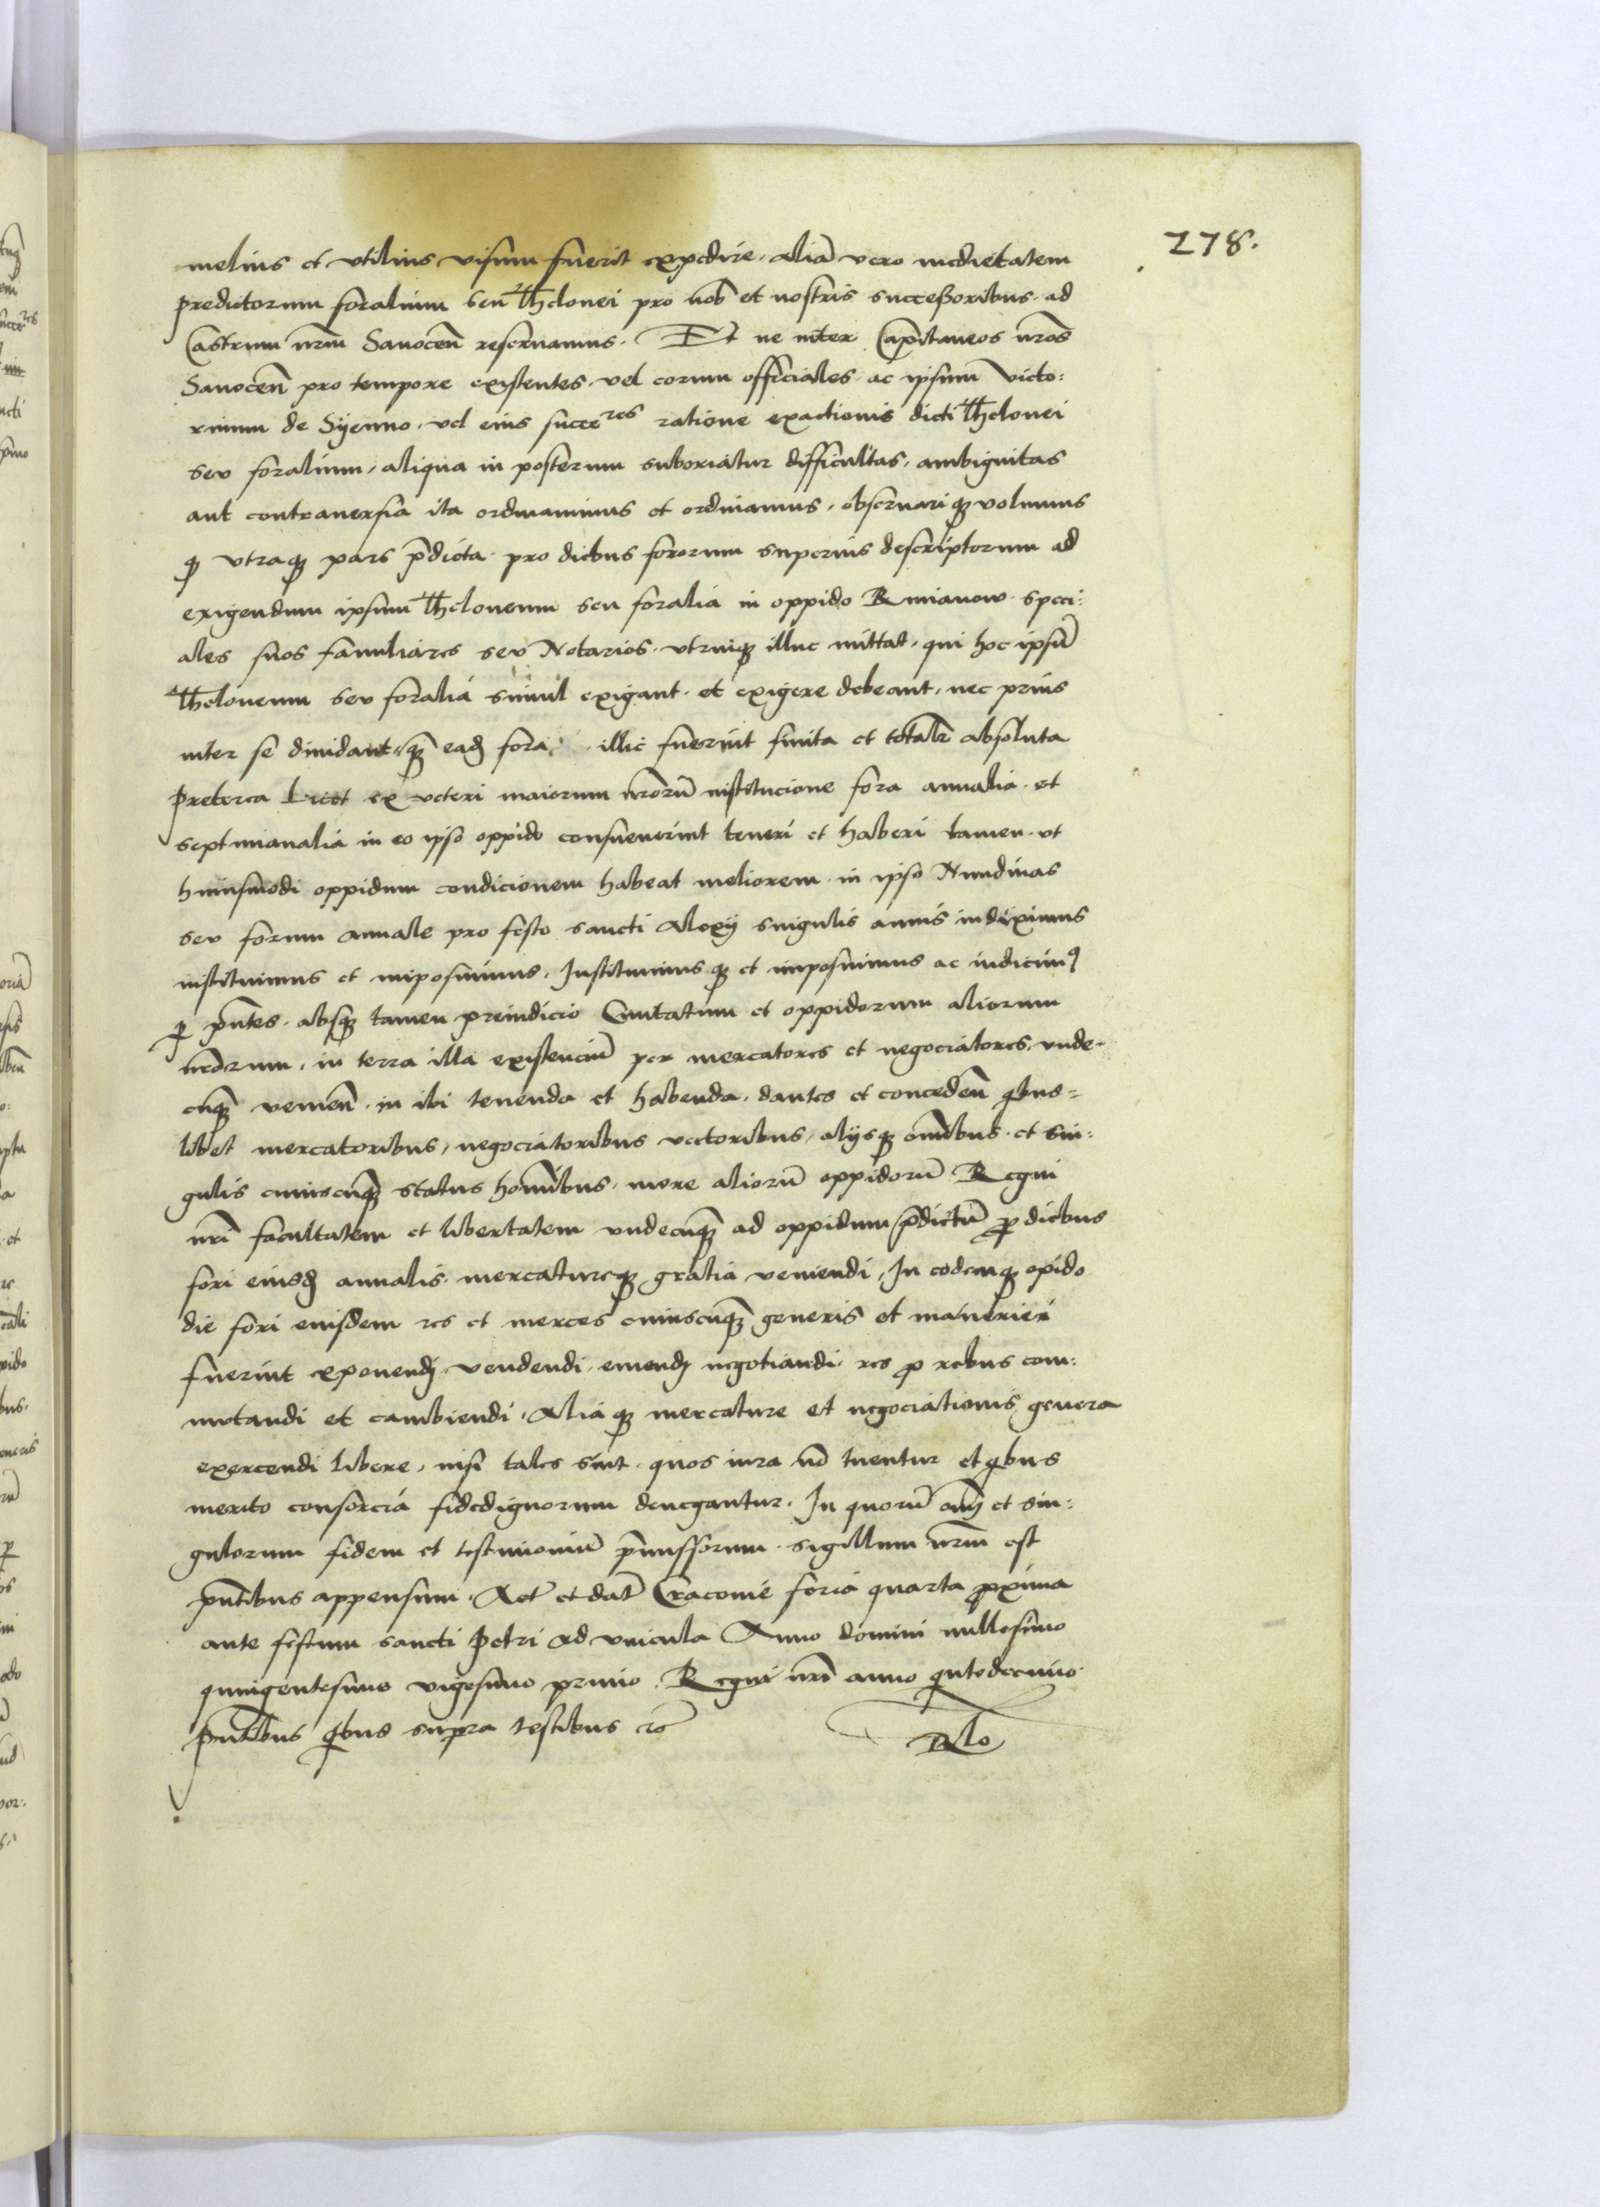 278.
melius et vtilius visum fuerit expedire, aliã vero medietatem
predictorum foralium seu Thelonei pro nob̃ et nostris successoribus ad
Castrum nr̃m Sanoceñ reseruamus. Et ne inter Capitaneos nr̃os
Sanoceñ pro tempore existentes, vel eorum officiales, ac ipsum Victo:
rinum de Syenno, vel eius succeres ratione exactionis dicti Thelonei
seu foralium, aliqua in posterum suboriatur difficultas, ambiguitas
aut contrauersia ita ordinauimus et ordinamus, obseruariqꝫ volumus
ꝙ vtraqꝫ pars p̃dicta pro diebus fororum superius descriptorum ad
exigendum ipsum Theloneum seu foralia in oppido Rmianow speci:
ales suos familiares seu Notarios vtrinqꝫ illuc mittat, qui hoc ipsũ
Theloneum seu foralia simul exigant et exigere debeant, nec prius
inter se diuidant, qꝫ̃ eadꝫ fora illic fuerint finita et totalr̃ absoluta
Preterea Licet ex veteri maiorum nr̃orũ institucione fora annalia et
septimanalia in eo ipso oppido consueuerint teneri et haberi tamen vt
huiusmodi oppidum condicionem habeat meliorem in ipso Nundinas
seu forum annale pro festo sancti Alexy singulis annis indiximus
instituimus et imposuimus, Instituimusqꝫ et imposuimus ac indicimꝰ
ꝑ pñtes absqꝫ tamen preiudicio Ciuitatum et oppidorum aliorum
nr̃orum, in terra illa existenciũ per mercatores et negociatores, vnde-
cunqꝫ venieñ in ibi tenenda et habenda, dantes et concedeñ qibus=
libet mercatoribus, negociatoribus vectoribus, alysqꝫ om̃ibus et sin:
gulis cuiuscunqꝫ status hom̃ibus, more aliorũ oppidorũ Regni
nr̃i facultatem et libertatem vndecunqꝫ ad oppidum p̃dictũ ꝓ diebus
fori eiusdꝫ annalis mercatureqꝫ gratia veniendi, In eodemqꝫ opido
die fori eiusdem res et merces cuiuscunqꝫ generis et manerici
fuerint exponendj vendendi, emendj negotiandi, res ꝓ rebus com:
mutandi et cambiendi, Aliaqꝫ mercature et negociationis genera
exercendi libere, nisi tales sint quos iura nõ tuentur et qibus
merito consorcia fidedignorum denegantur. In quorũ om̃ et sin:
gulorum fidem et testimoniũ p̃missorum sigillum nr̃m est
pñtibus appensum. Act̃ et dat̃ Cracouie feria quarta ꝓxima
ante festum sancti Petri ad vincula Anno domini millesimo
quingentesimo vigesimo primo Regni nr̃i anno qintodecimo
pñtibus qibus supra testibus ec̃